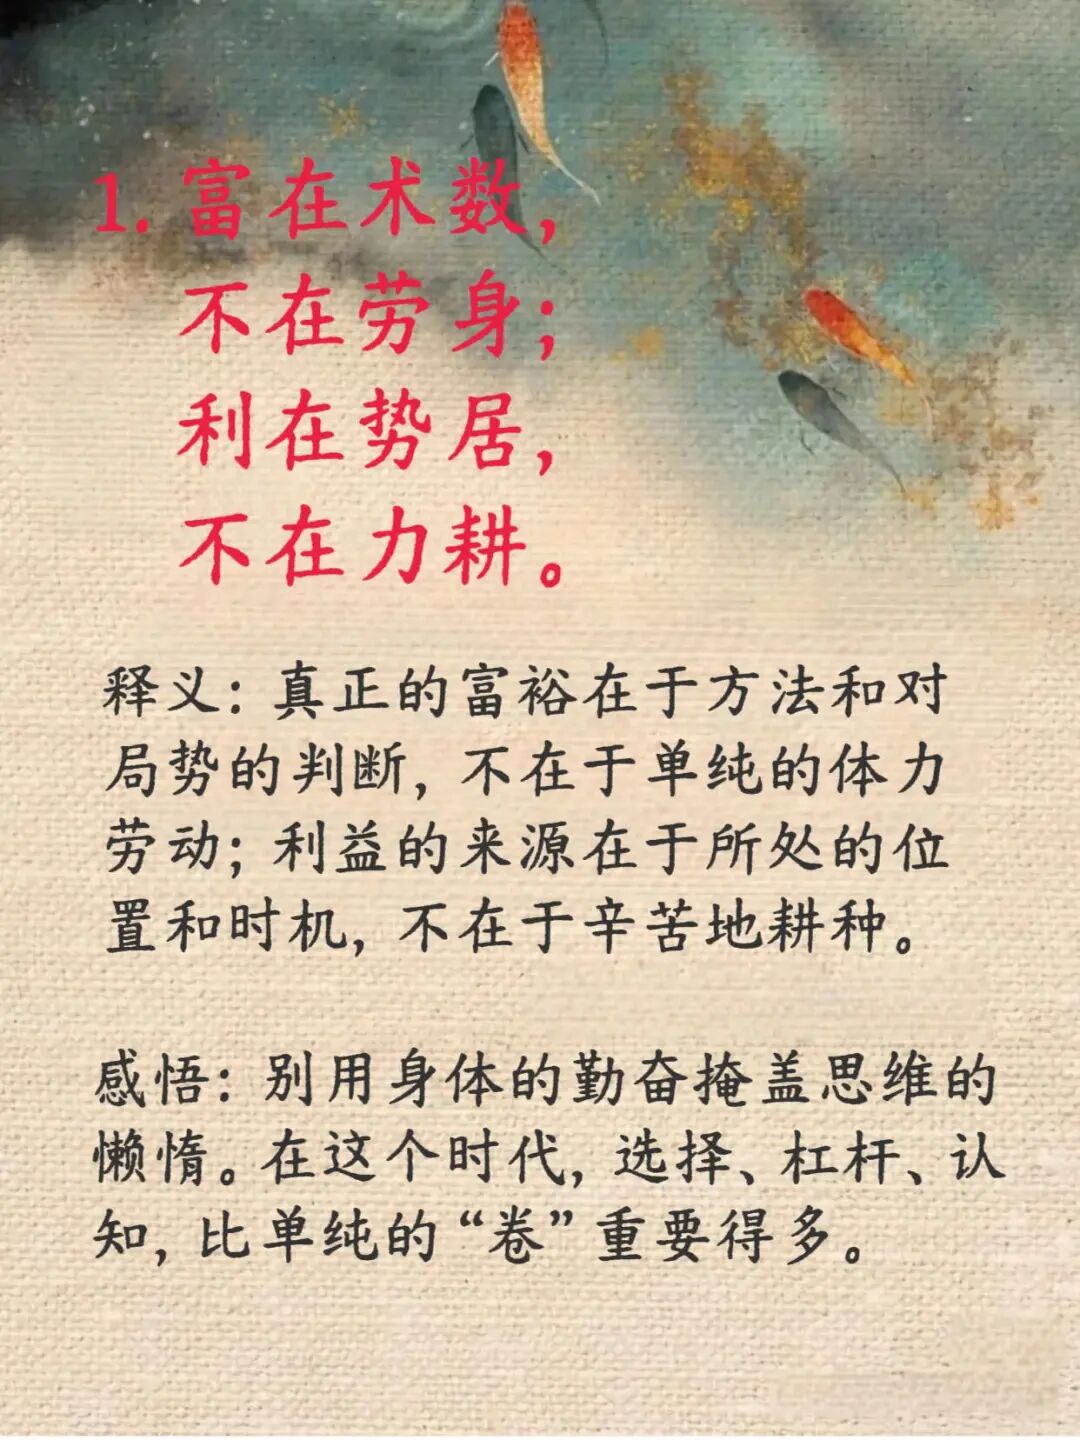 1. 富在术数，
不在劳身；
利在势居，
不在力耕。
释义：真正的富裕在于方法和对
局势的判断，不在于单纯的体力
劳动；利益的来源在于所处的位
置和时机，不在于辛苦地耕种。
感悟：别用身体的勤奋掩盖思维的
懒惰。在这个时代，选择、杠杆、认
知，比单纯的“卷”重要得多。